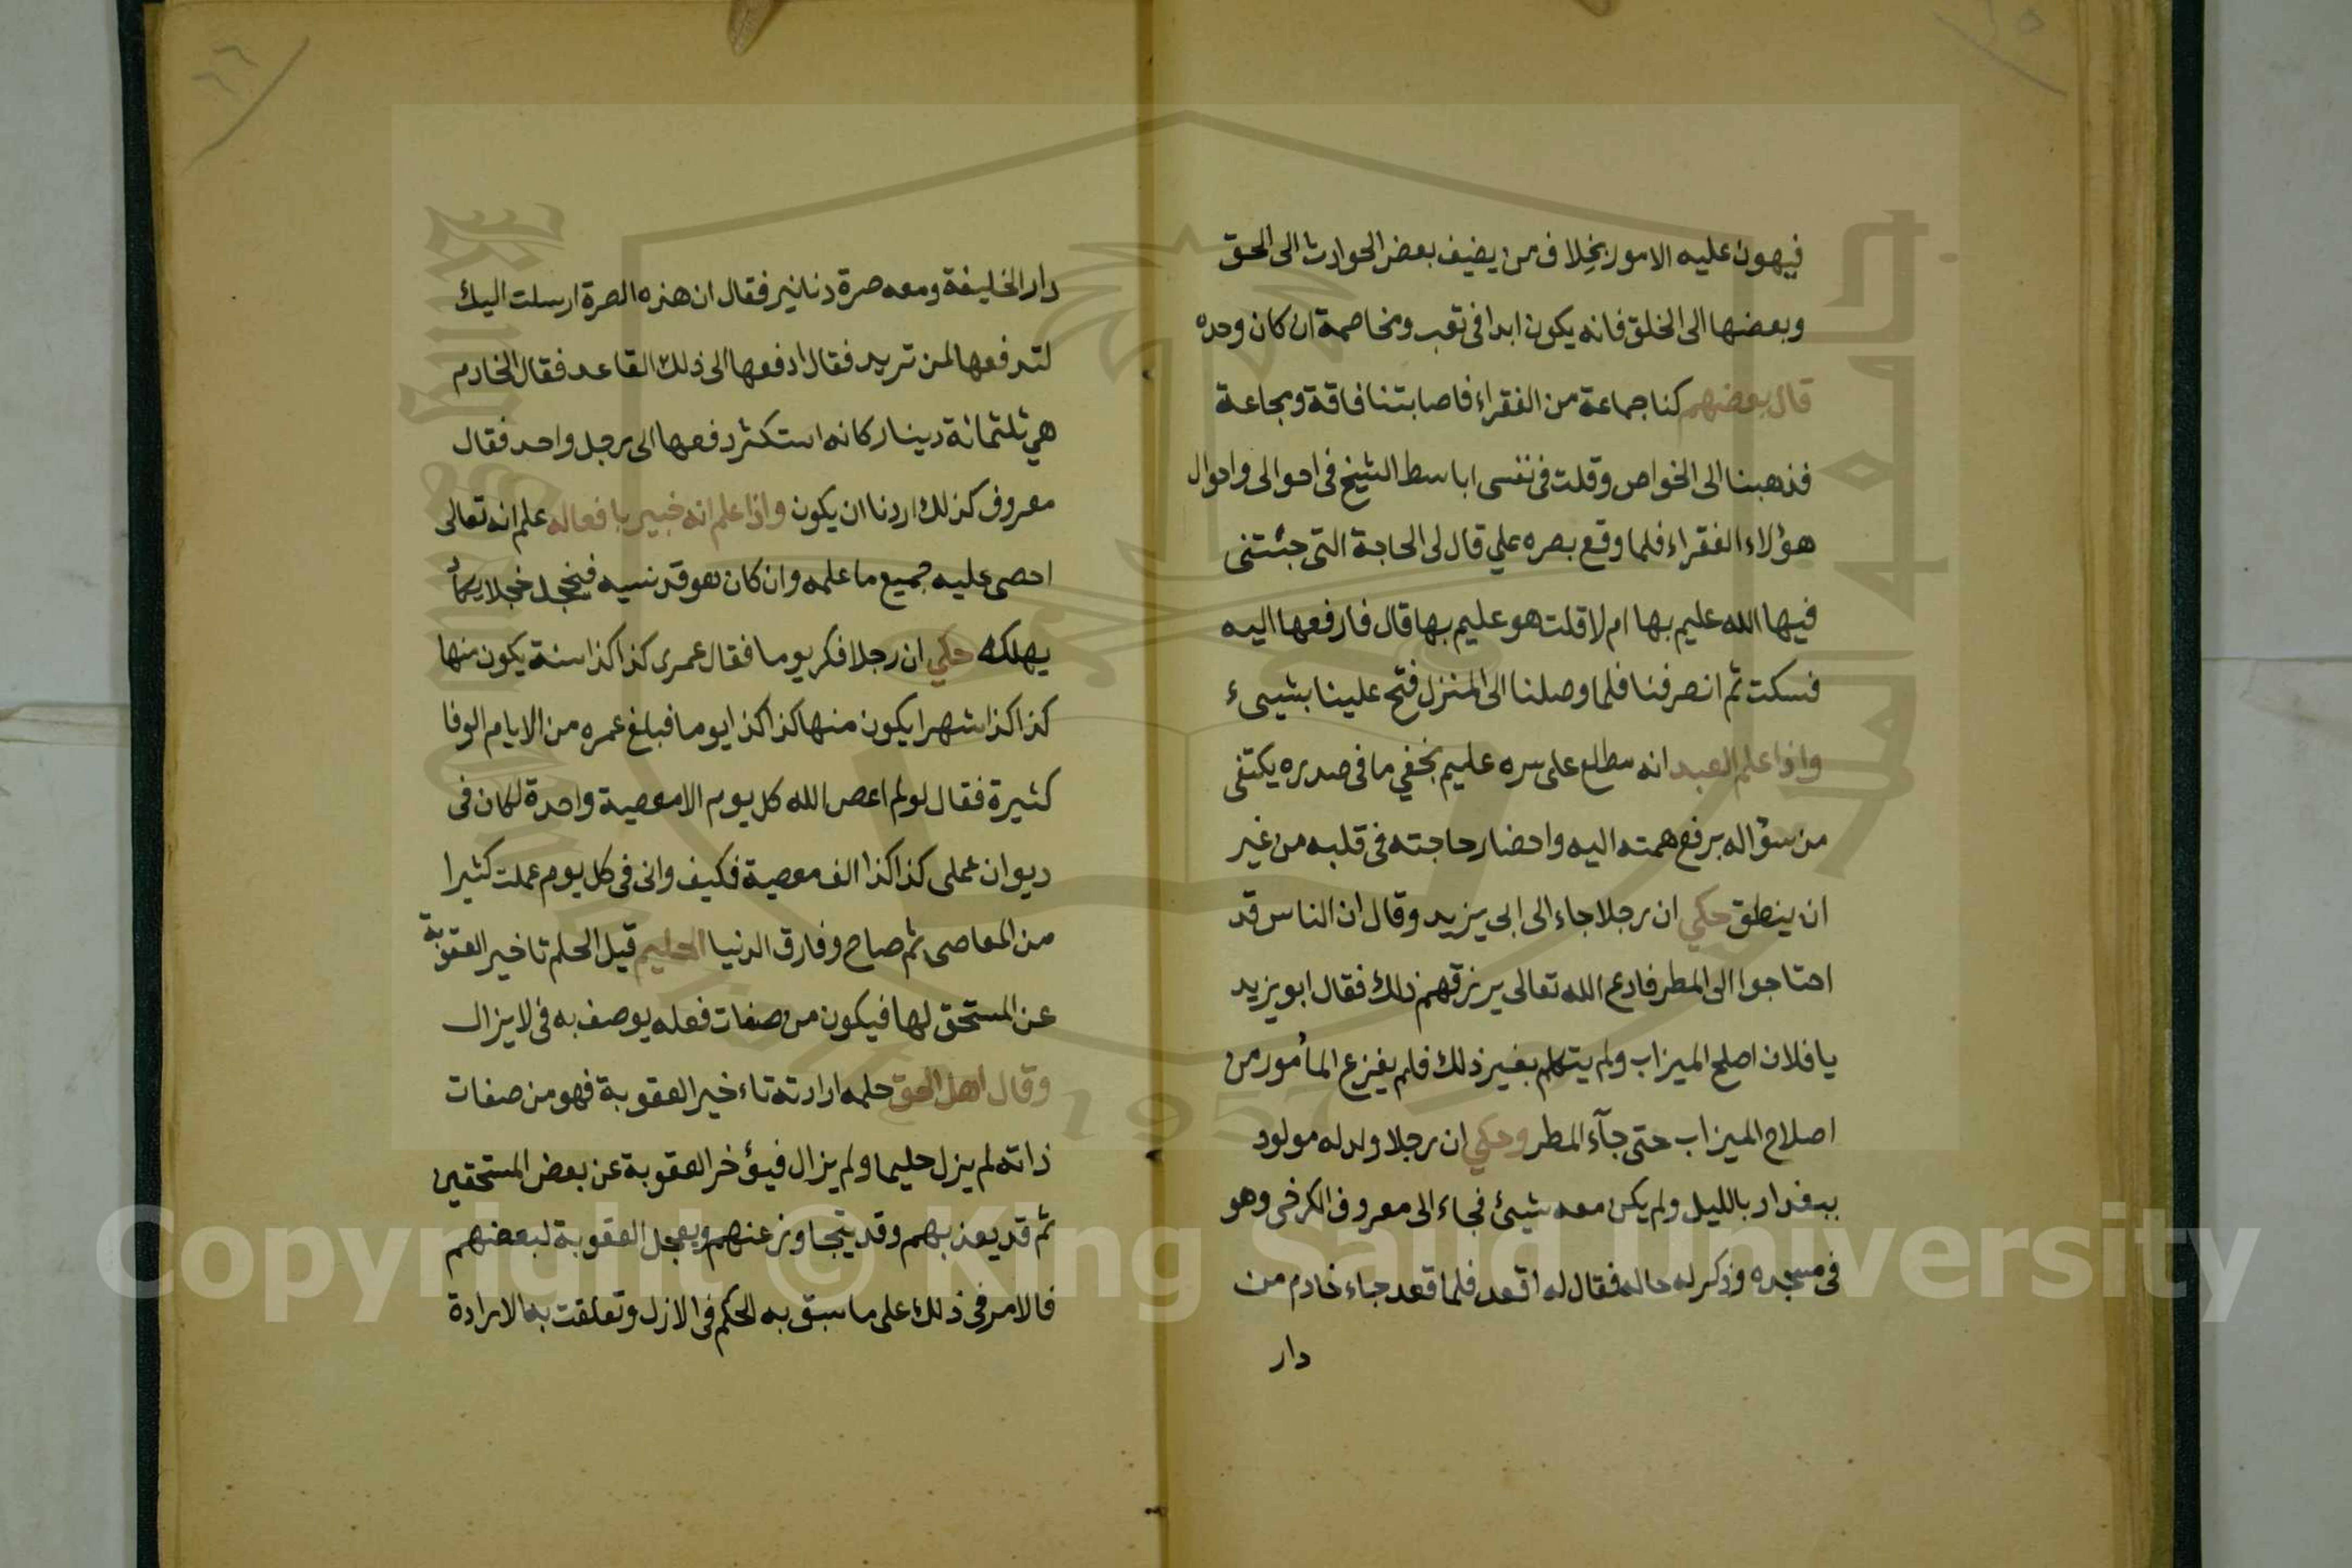 فيهون عليه الامور بخلاف من يضيف بعض الحوادث الى الحق
وبعضها الى الخلق فانه يكون ابدا فى تعب ومخاصمة ان كان وحده
قال بعضهم كنا جماعة من الفقراء فاصابتنا فاقة ومجاعة
فذهبنا الى الخواص وقلت فى نفسى اباسط الشيخ فى احوالى واحوال
هؤلاء الفقراء فلما وقع بصره علي قال لى الحاجة التى جئتنى
فيها الله عليم بها ام لا قلت هو عليم بها قال فارفعها اليه
فسكت ثم انصرفنا فلما وصلنا الى المنزل فتح علينا بشيىء
واذا علم العبد انه مطلع على سره عليم بخفي ما فى صدره يكتفى
من سؤاله برفع همته اليه واحضار حاجته فى قلبه من غير
ان ينطق حكي ان رجلا جاء الى ابى يزيد وقال ان الناس قد
احتاجوا الى المطر فادع الله تعالى يرزقهم ذلك فقال ابو يزيد
يا فلان اصلح الميزاب ولم يتكلم بغير ذلك فلم يفرغ المأمور من
اصلاح الميزاب حتى جآء المطر وحكي ان رجلا ولد له مولود
ببغداد بالليل ولم يكن معه شيئ فجاء الى معروف الكرخى وهو
فى مسجده وذكر له حاله فقال له اقعد فلما قعد جاء خادم من
دار
٦٦
دار الخليفة ومعه صرة دنانير فقال ان هذه الصرة ارسلت اليك
لتدفعها لمن تريد فقال ادفعها الى ذلك القاعد فقال الخادم
هي ثلثمائة دينار كانه استكثر دفعها الى رجل واحد فقال
معروف كذلك اردنا ان يكون واذا علم انه خبير بافعاله علم انه تعالى
احصى عليه جميع ما علمه وان كان هو قد نسيه فيخجل خجلا يكاد
يهلكه حكي ان رجلا فكر يوما فقال عمرى كذا كذا سنة يكون منها
كذا كذا شهرا يكون منها كذا كذا يوما فبلغ عمره من الايام الوفا
كثيرة فقال لو لم اعص الله كل يوم الا معصية واحدة لكان فى
ديوان عملى كذا كذا الف معصية فكيف وانى فى كل يوم عملت كثيرا
من المعاصى ثم صاح وفارق الدنيا الحليم قيل الحلم تاخير العقوبة
عن المستحق لها فيكون من صفات فعله يوصف به فى لا يزال
وقال اهل الحق حلمه ارادته تاءخير العقوبة فهو من صفات
ذاته لم يزل حليما ولم يزال فيؤخر العقوبة عن بعض المستحقين
ثم قد يعذبهم وقد يتجاوز عنهم ويعجل العقوبة لبعضهم
فالامر فى ذلك على ما سبق به الحكم فى الازل وتعلقت به الارادة
Copyright © King Saud University
1957